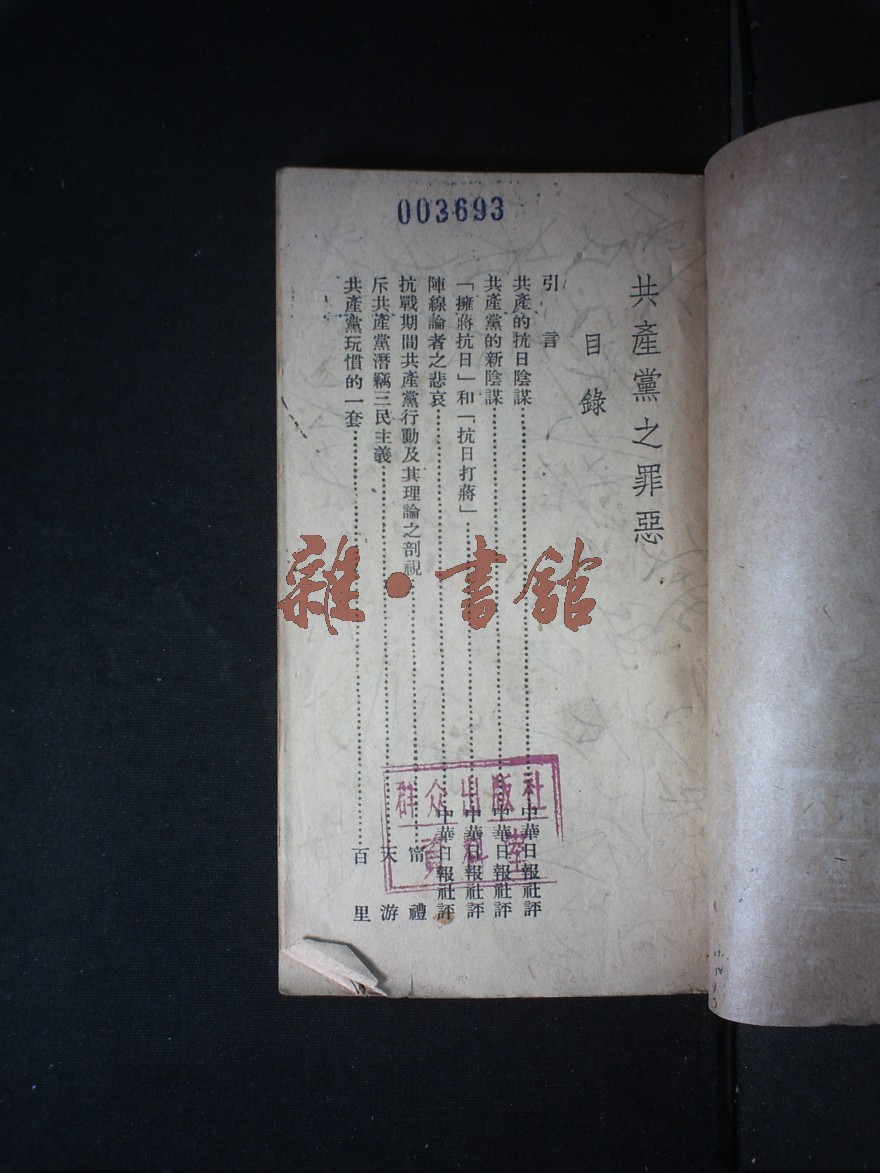 003693
共產黨之罪惡
目錄
引言
共產的抗日陰謀……中華日報社評
共產黨的新陰謀……中華日報社評
「擁蔣抗日」和「抗日打蔣」……中華日報社評
陣線論者之悲哀……中華日報社評
抗戰期間共產黨行動及其理論之剖視……甯禮
斥共產黨潛竊三民主義……天游
共產黨玩慣的一套……百里
雜·書館
群众出版社
資料室